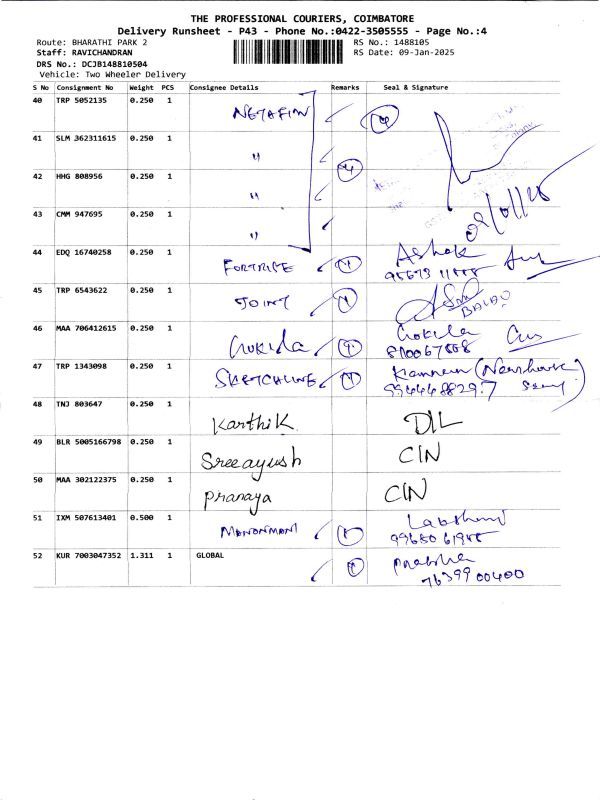 THE PROFESSIONAL COURIERS, COIMBATORE
Delivery Runsheet - P43 - Phone No.:0422-3505555 - Page No.:4
Route: BHARATHI PARK 2 RS No.: 1488105
Staff: RAVICHANDRAN RS Date: 09-Jan-2025
DRS No.: DCJB148810504
Vehicle: Two Wheeler Delivery
S No Consignment No Weight PCS Consignee Details Remarks Seal & Signature
40 TRP 5052135 0.250 1 NETAFIM
41 SLM 362311615 0.250 1 "
42 HHG 808956 0.250 1 "
43 CMM 947695 0.250 1 "
09/01/25
44 EDQ 16740258 0.250 1 Ashok
45 TRP 6543622 0.250 1 JOINT
46 MAA 706412615 0.250 1 Gokila Gokila
47 TRP 1343098 0.250 1 SKETCHLINE
48 TNJ 803647 0.250 1 Karthik DIL
49 BLR 5005166798 0.250 1 Sreeayush CIN
50 MAA 302122375 0.250 1 Pranaya CIN
51 IXM 507613401 0.500 1 MANONMANI
52 KUR 7003047352 1.311 1 GLOBAL Prabha
7639900400